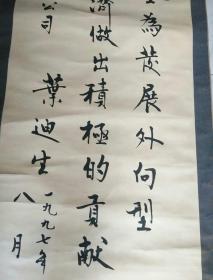 為发展外向型
濟做出積極的貢献
公司 葉迪生
一九九七年
八月